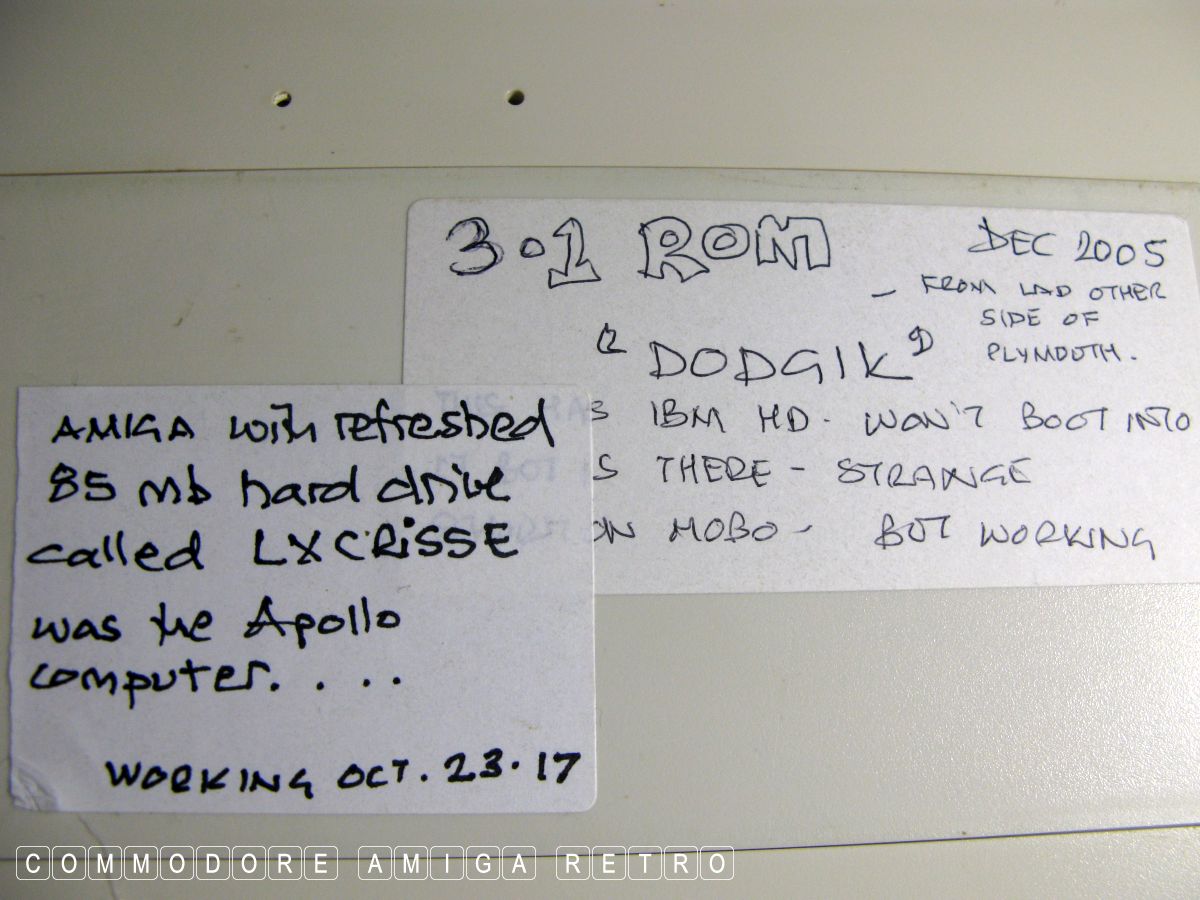 3.1 ROM
DEC 2005
- FROM LAD OTHER
SIDE OF
PLYMOUTH.
"DODGIK"
IBM HD. WON'T BOOT INTO
THERE - STRANGE
ON MOBO - BUT WORKING
AMIGA with refreshed
85 mb hard drive
called LXCRISSE
was the Apollo
computer. . . .
WORKING OCT. 23.17
COMMODORE AMIGA RETRO